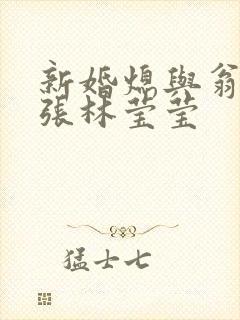 新婚媳與翁
張林莹莹
猛士七